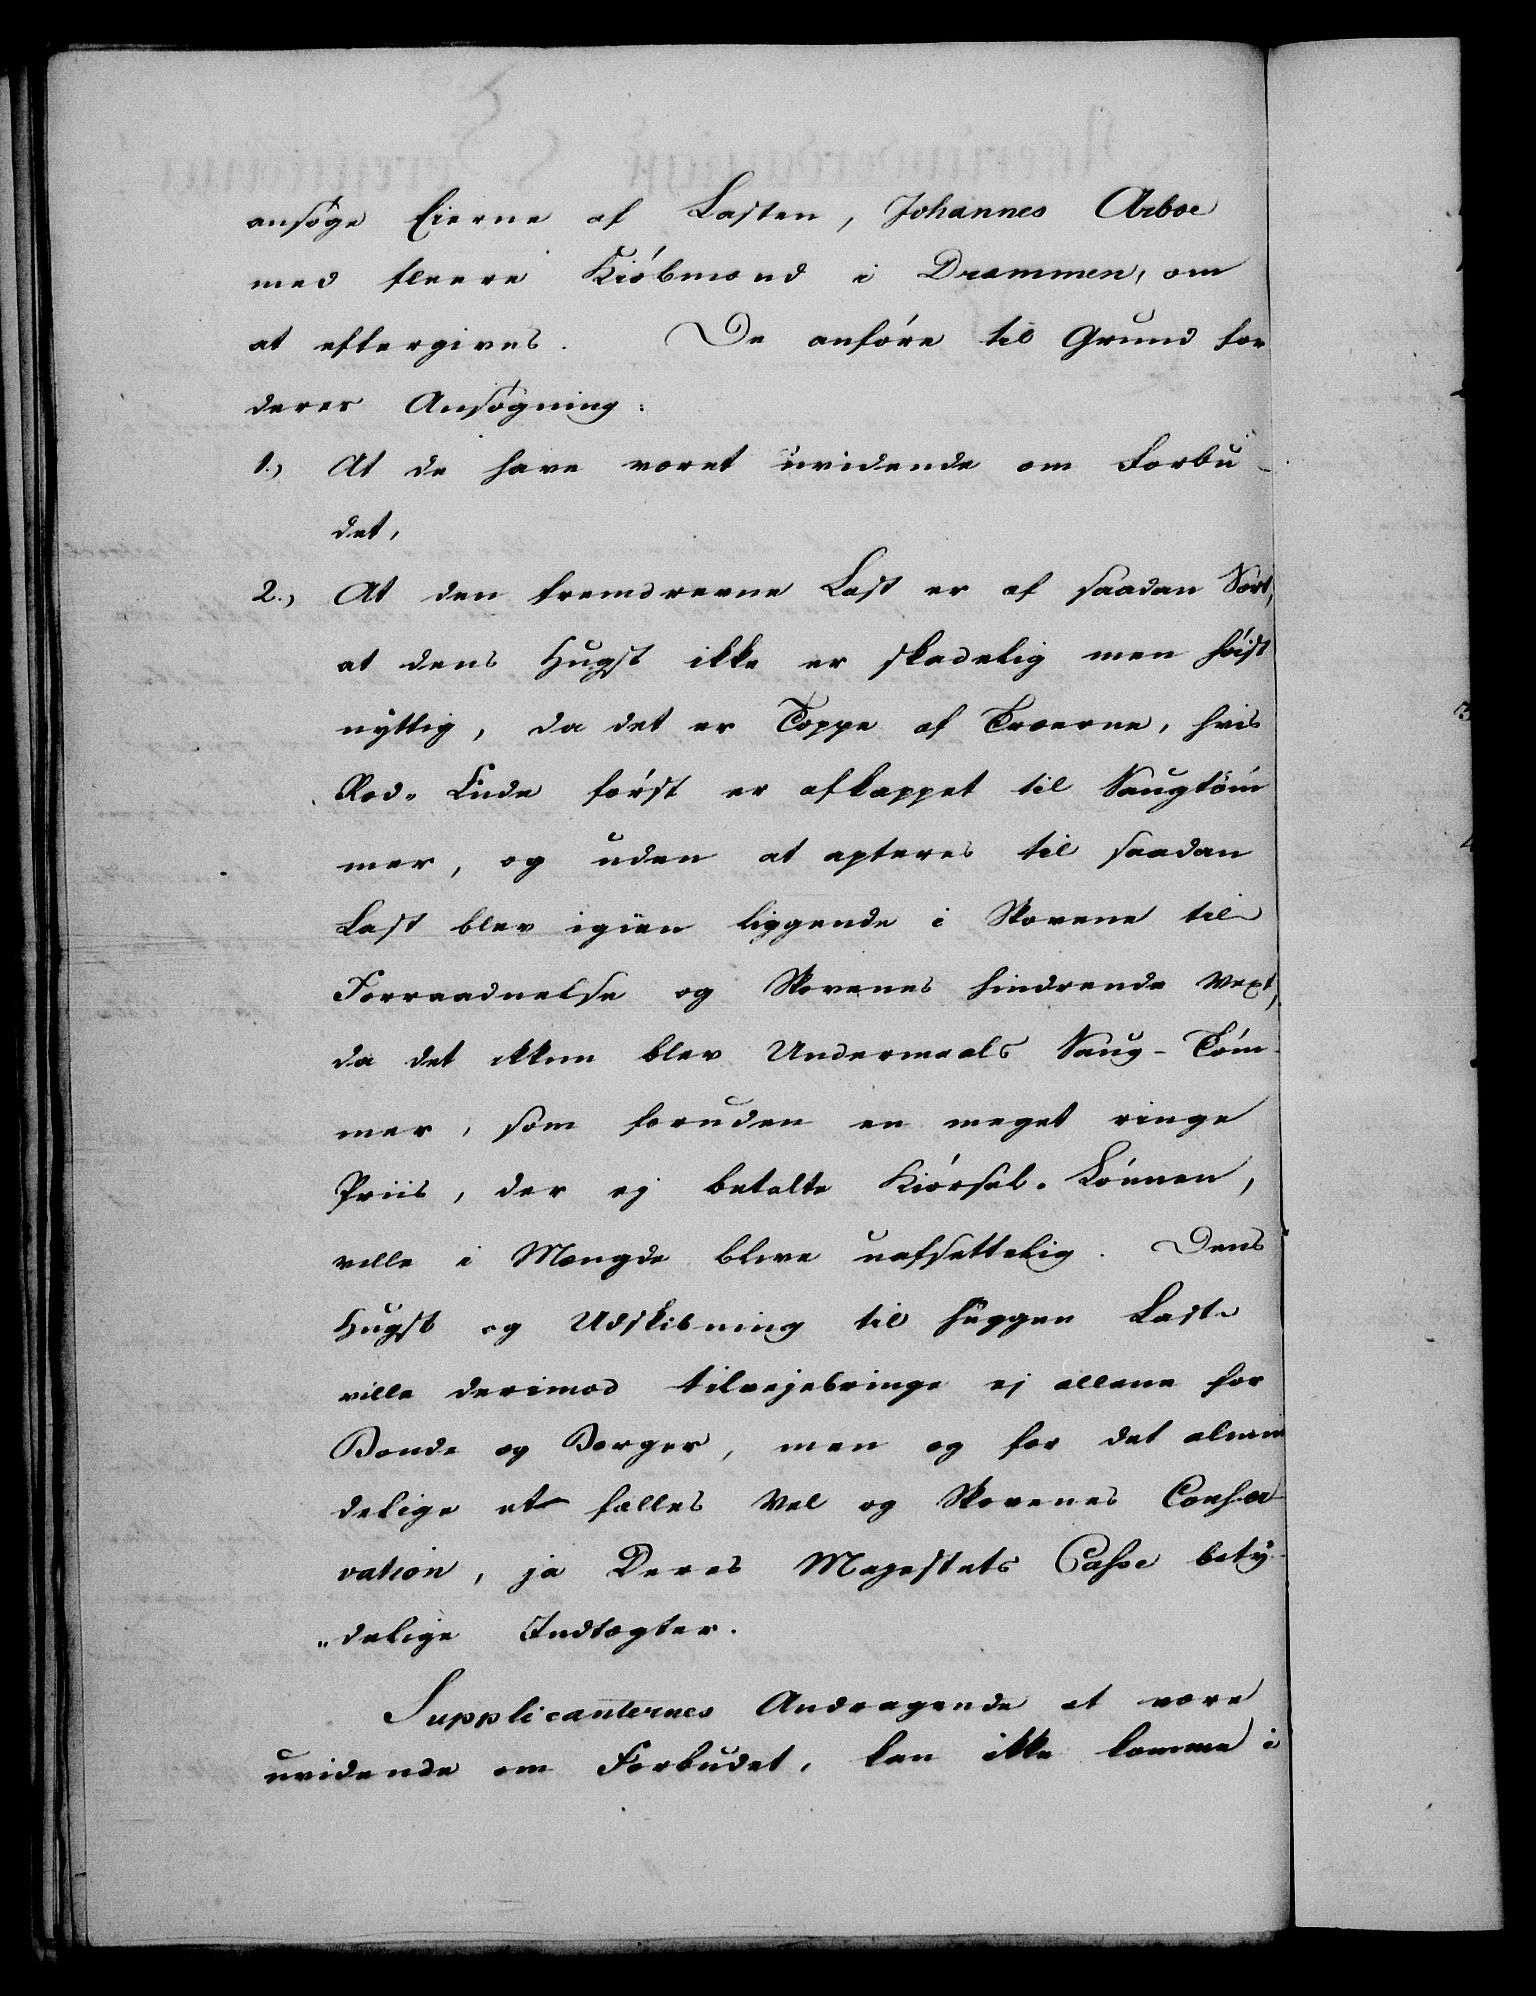 ansøge Eierne af Lasten, Johannes Arboe
med fleere Kiøbmænd i Drammen, om
at eftergives. De anføre til Grund for
deres Ansøgning:
1.) At de have været uvidende om Forbu-
det,
2.) At den fremdrevne Last er af saadan Sort,
at dens Hugst ikke er skadelig men høist
nyttig, da det er Toppe af Træerne, hvis
Rod-Ende først er afkappet til Saugtöm
mer, og uden at apteres til saadan
Last blev igien liggende i Skovene til
Forraadnelse og Skovenes hindrende Vext,
da det ikkun blev Undermaals Saug-Töm-
mer, som foruden en meget ringe
Priis, der ej betalte Kiørsel-Lønnen,
ville i Mængde blive uafsettelig. Dens
Hugst og Udskibning til huggen Last
ville derimod tilvejebringe ej allene for
Bonde og Borger, men og for det almin
delige et fælles Vel og Skovenes Conser
vation, ja Deres Majestets Casse bety-
"delige Indtægter.
Supplicanternes Andragende at være
uvidende om Forbudet, kan ikke komme i